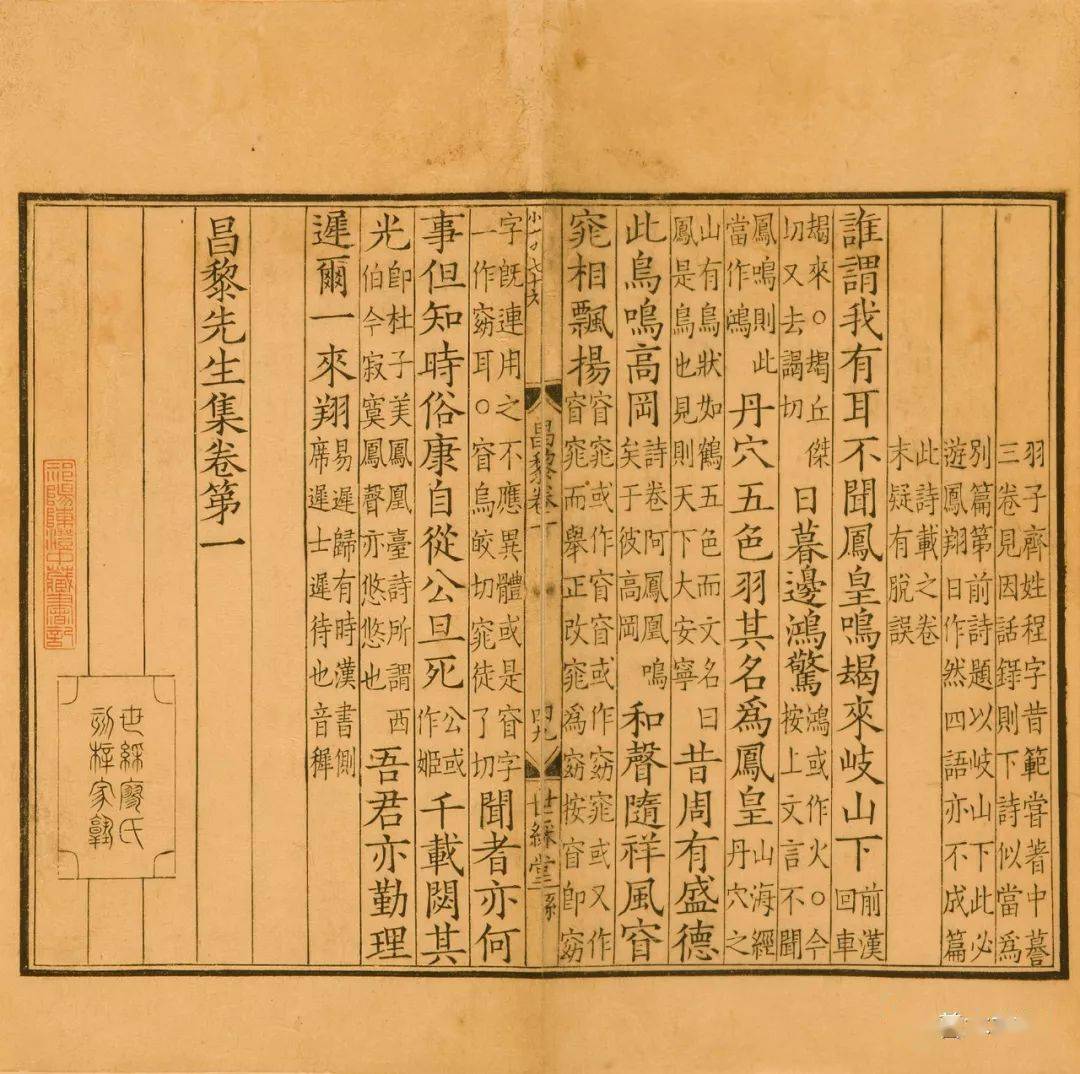 羽子齊姓程字昔範嘗著中謩
三卷見因話錄則下詩似當爲
別篇第前詩題以岐山下此必
遊鳳翔日作然四語亦不成篇
此詩載之卷
末疑有脫誤
誰謂我有耳不聞鳳皇鳴朅來岐山下
前漢
回車
朅來○朅丘傑
切又去謁切
日暮邊鴻驚
鴻或作火○今
按上文言不聞
鳳鳴則此
當作鴻
丹穴五色羽其名爲鳳皇
山海經
丹穴之
山有鳥狀如鶴五色而文名曰
鳳是鳥也見則天下大安寧
昔周有盛德
此鳥鳴高岡
詩卷阿鳳凰鳴
矣于彼高岡
和聲隨祥風窅
窕相飄揚
窅窕或作窅窅或作窈窕或又作
窅窕而舉正改窕爲窈按窅即窈
字旣連用之不應異體或是窅字
一作窈耳○窅烏皎切窕徒了切
聞者亦何
事但知時俗康自從公旦死
公或
作姬
千載閟其
光
卽杜子美鳳凰臺詩所謂西
伯今寂寞鳳聲亦悠悠也
吾君亦勤理
遲爾一來翔
易遲歸有時漢書側
席遲士遲待也音穉
昌黎先生集卷第一
世綵廖氏
刻梓家塾
祁陽陳澄中藏書記
昌黎卷一
四九
世綵堂